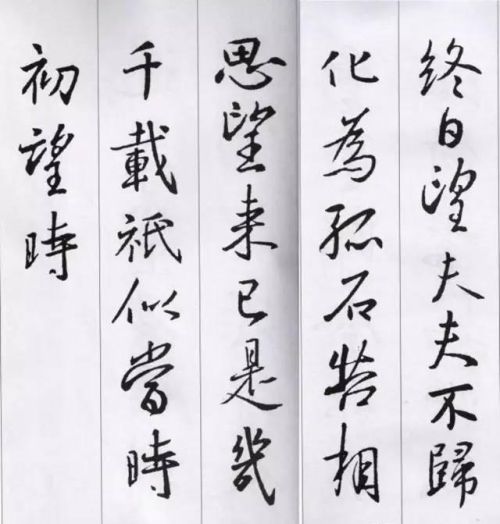 終日望夫夫不歸
化為孤石苦相
思望来已是幾
千載祗似當時
初望時